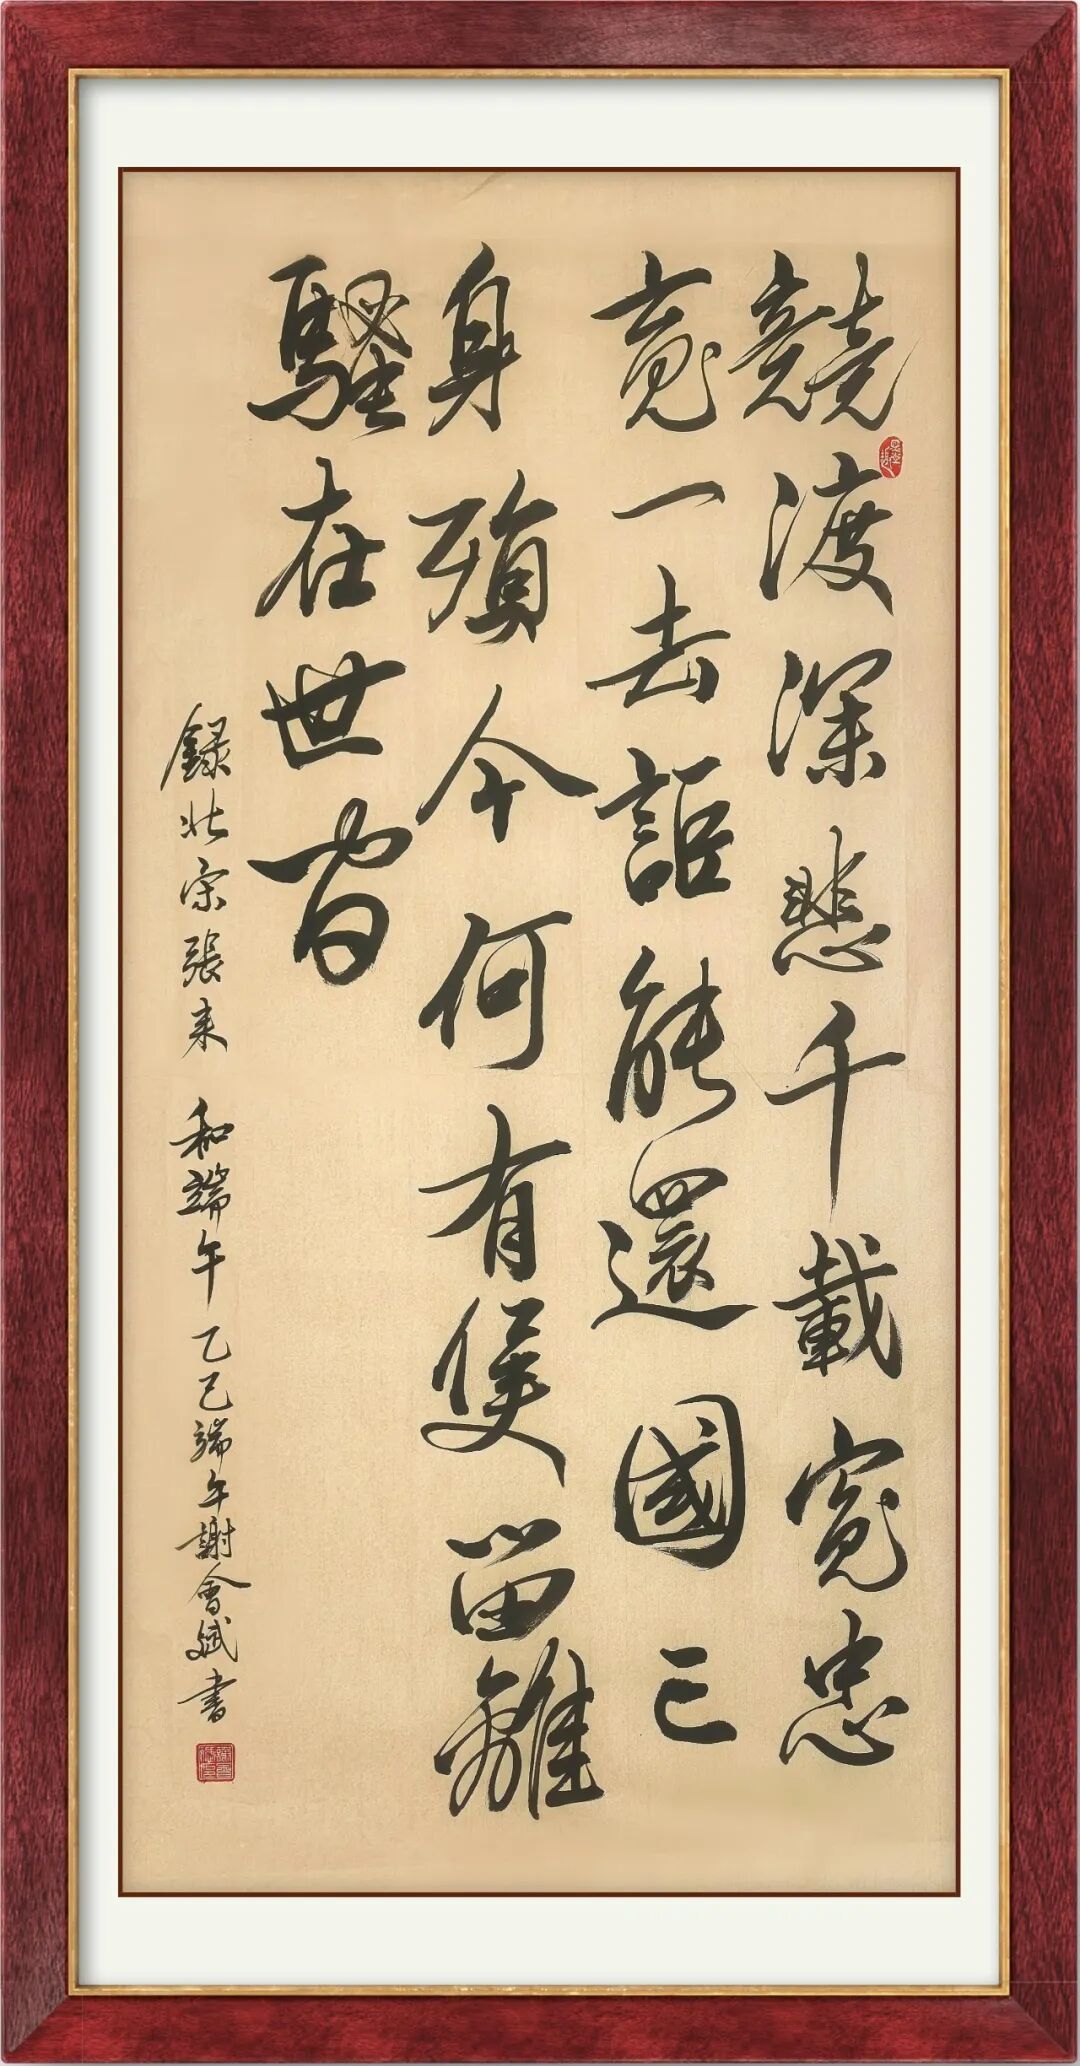 競渡深悲千載寃忠
魂一去詎能還國亡
身殞今何有隻留離
騷在世間
錄北宋張耒 和端午 乙巳端午謝會斌書